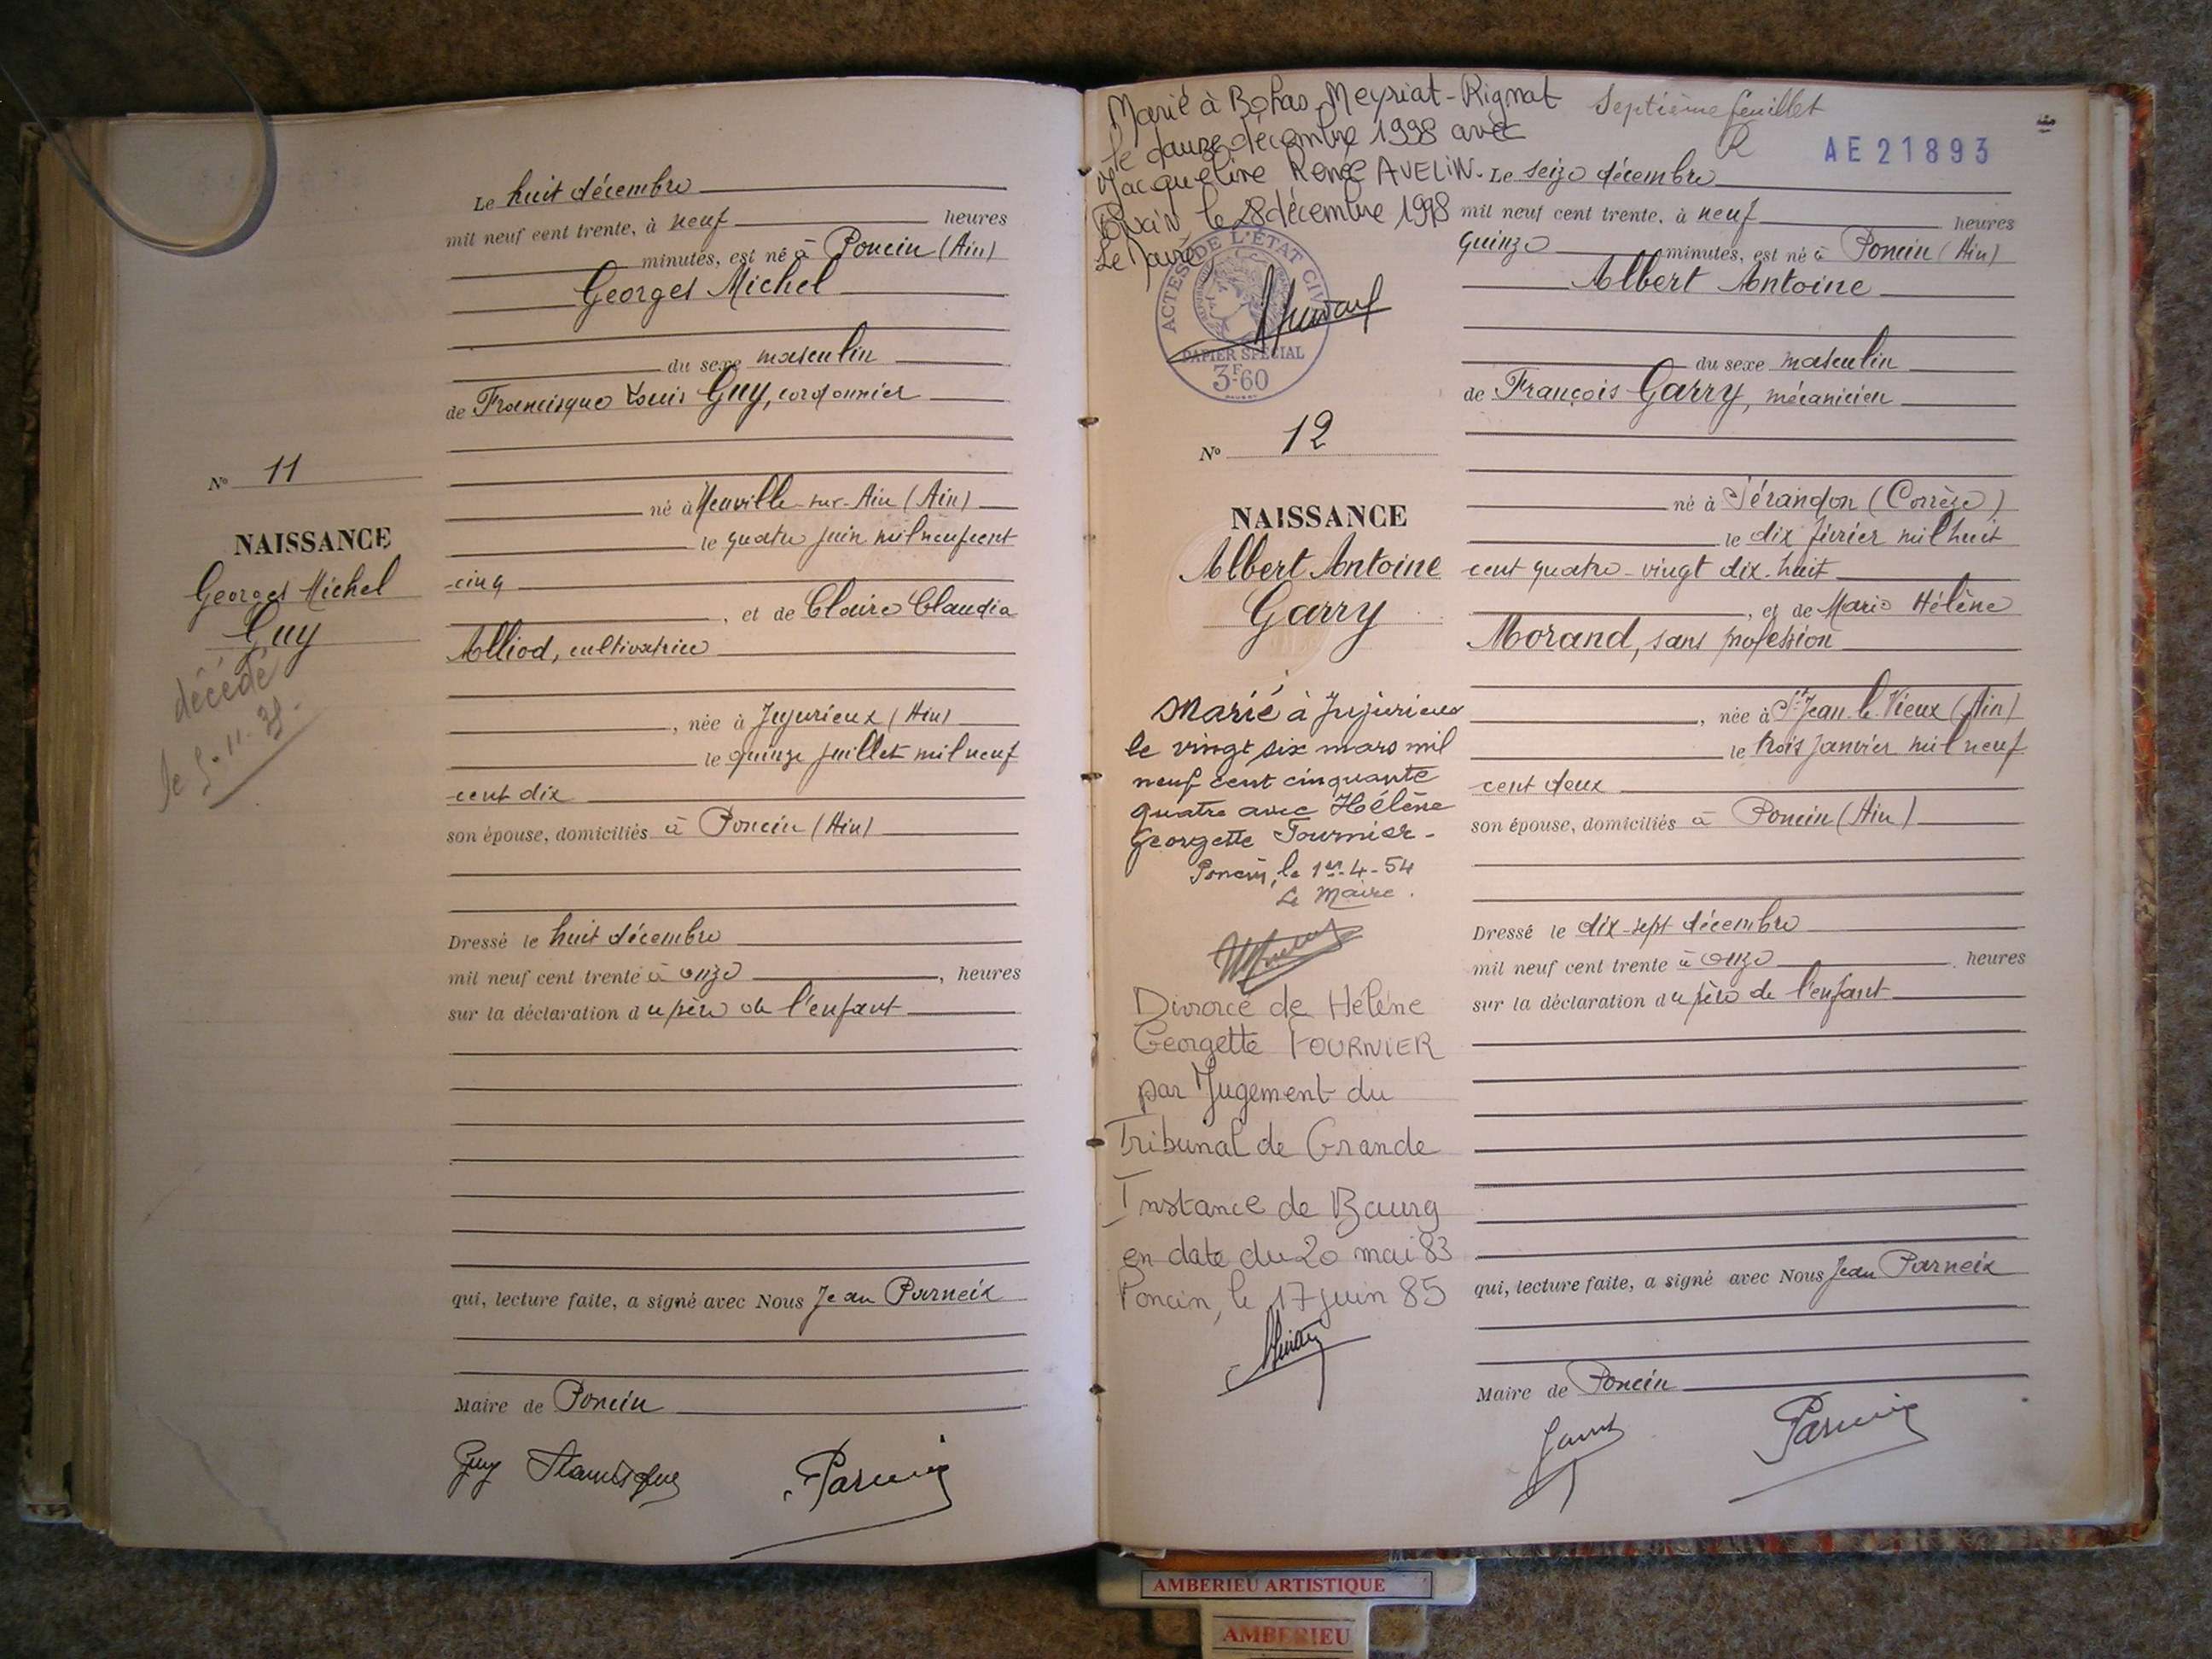 Le huit décembre
mil neuf cent trente, à neuf heures
minutes, est né à Poncin (Ain)
Georges Michel
du sexe masculin
de Francisque Louis Guy, cordonnier
né à Neuville-sur-Ain (Ain)
le quatre juin mil neuf cent
cinq
, et de Claire Claudia
Alliod, cultivatrice
, née à Jujurieux (Ain)
le quinze juillet mil neuf
cent dix
son épouse, domiciliés à Poncin (Ain)
Dressé le huit décembre
mil neuf cent trente à onze , heures
sur la déclaration du père de l'enfant
qui, lecture faite, a signé avec Nous Jean Parneix
Maire de Poncin
Guy
N° 11
NAISSANCE
Georges Michel
Guy
décédé
Marié à Bohas-Meyriat-Rignat
le douze décembre 1998 avec
Jacqueline Renée AVELIN.
le 28 décembre 1998
Le Maire
ACTES DE L'ÉTAT CIVIL
PAPIER SPÉCIAL
3F60
N° 12
NAISSANCE
Albert Antoine
Garry
Marié à Jujurieux
le vingt six mars mil
neuf cent cinquante
quatre avec Hélène
Georgette Fournier-
Poncin, le 1er-4-54
Le Maire.
Divorcé de Hélène
Georgette FOURNIER
par Jugement du
Tribunal de Grande
Instance de Bourg
en date du 20 mai 83
Poncin, le 17 juin 85
Septième feuillet
R
AE21893
Le seize décembre
mil neuf cent trente, à neuf heures
quinze minutes, est né à Poncin (Ain)
Albert Antoine
du sexe masculin
de François Garry, mécanicien
né à Sérandon (Corrèze)
le dix février mil huit
cent quatre-vingt dix-huit
, et de Marie Hélène
Morand, sans profession
, née à St Jean-le-Vieux (Ain)
le trois janvier mil neuf
cent deux
son épouse, domiciliés à Poncin (Ain)
Dressé le dix-sept décembre
mil neuf cent trente à onze heures
sur la déclaration du père de l'enfant
qui, lecture faite, a signé avec Nous Jean Parneix
Maire de Poncin
AMBERIEU ARTISTIQUE
AMBERIEU